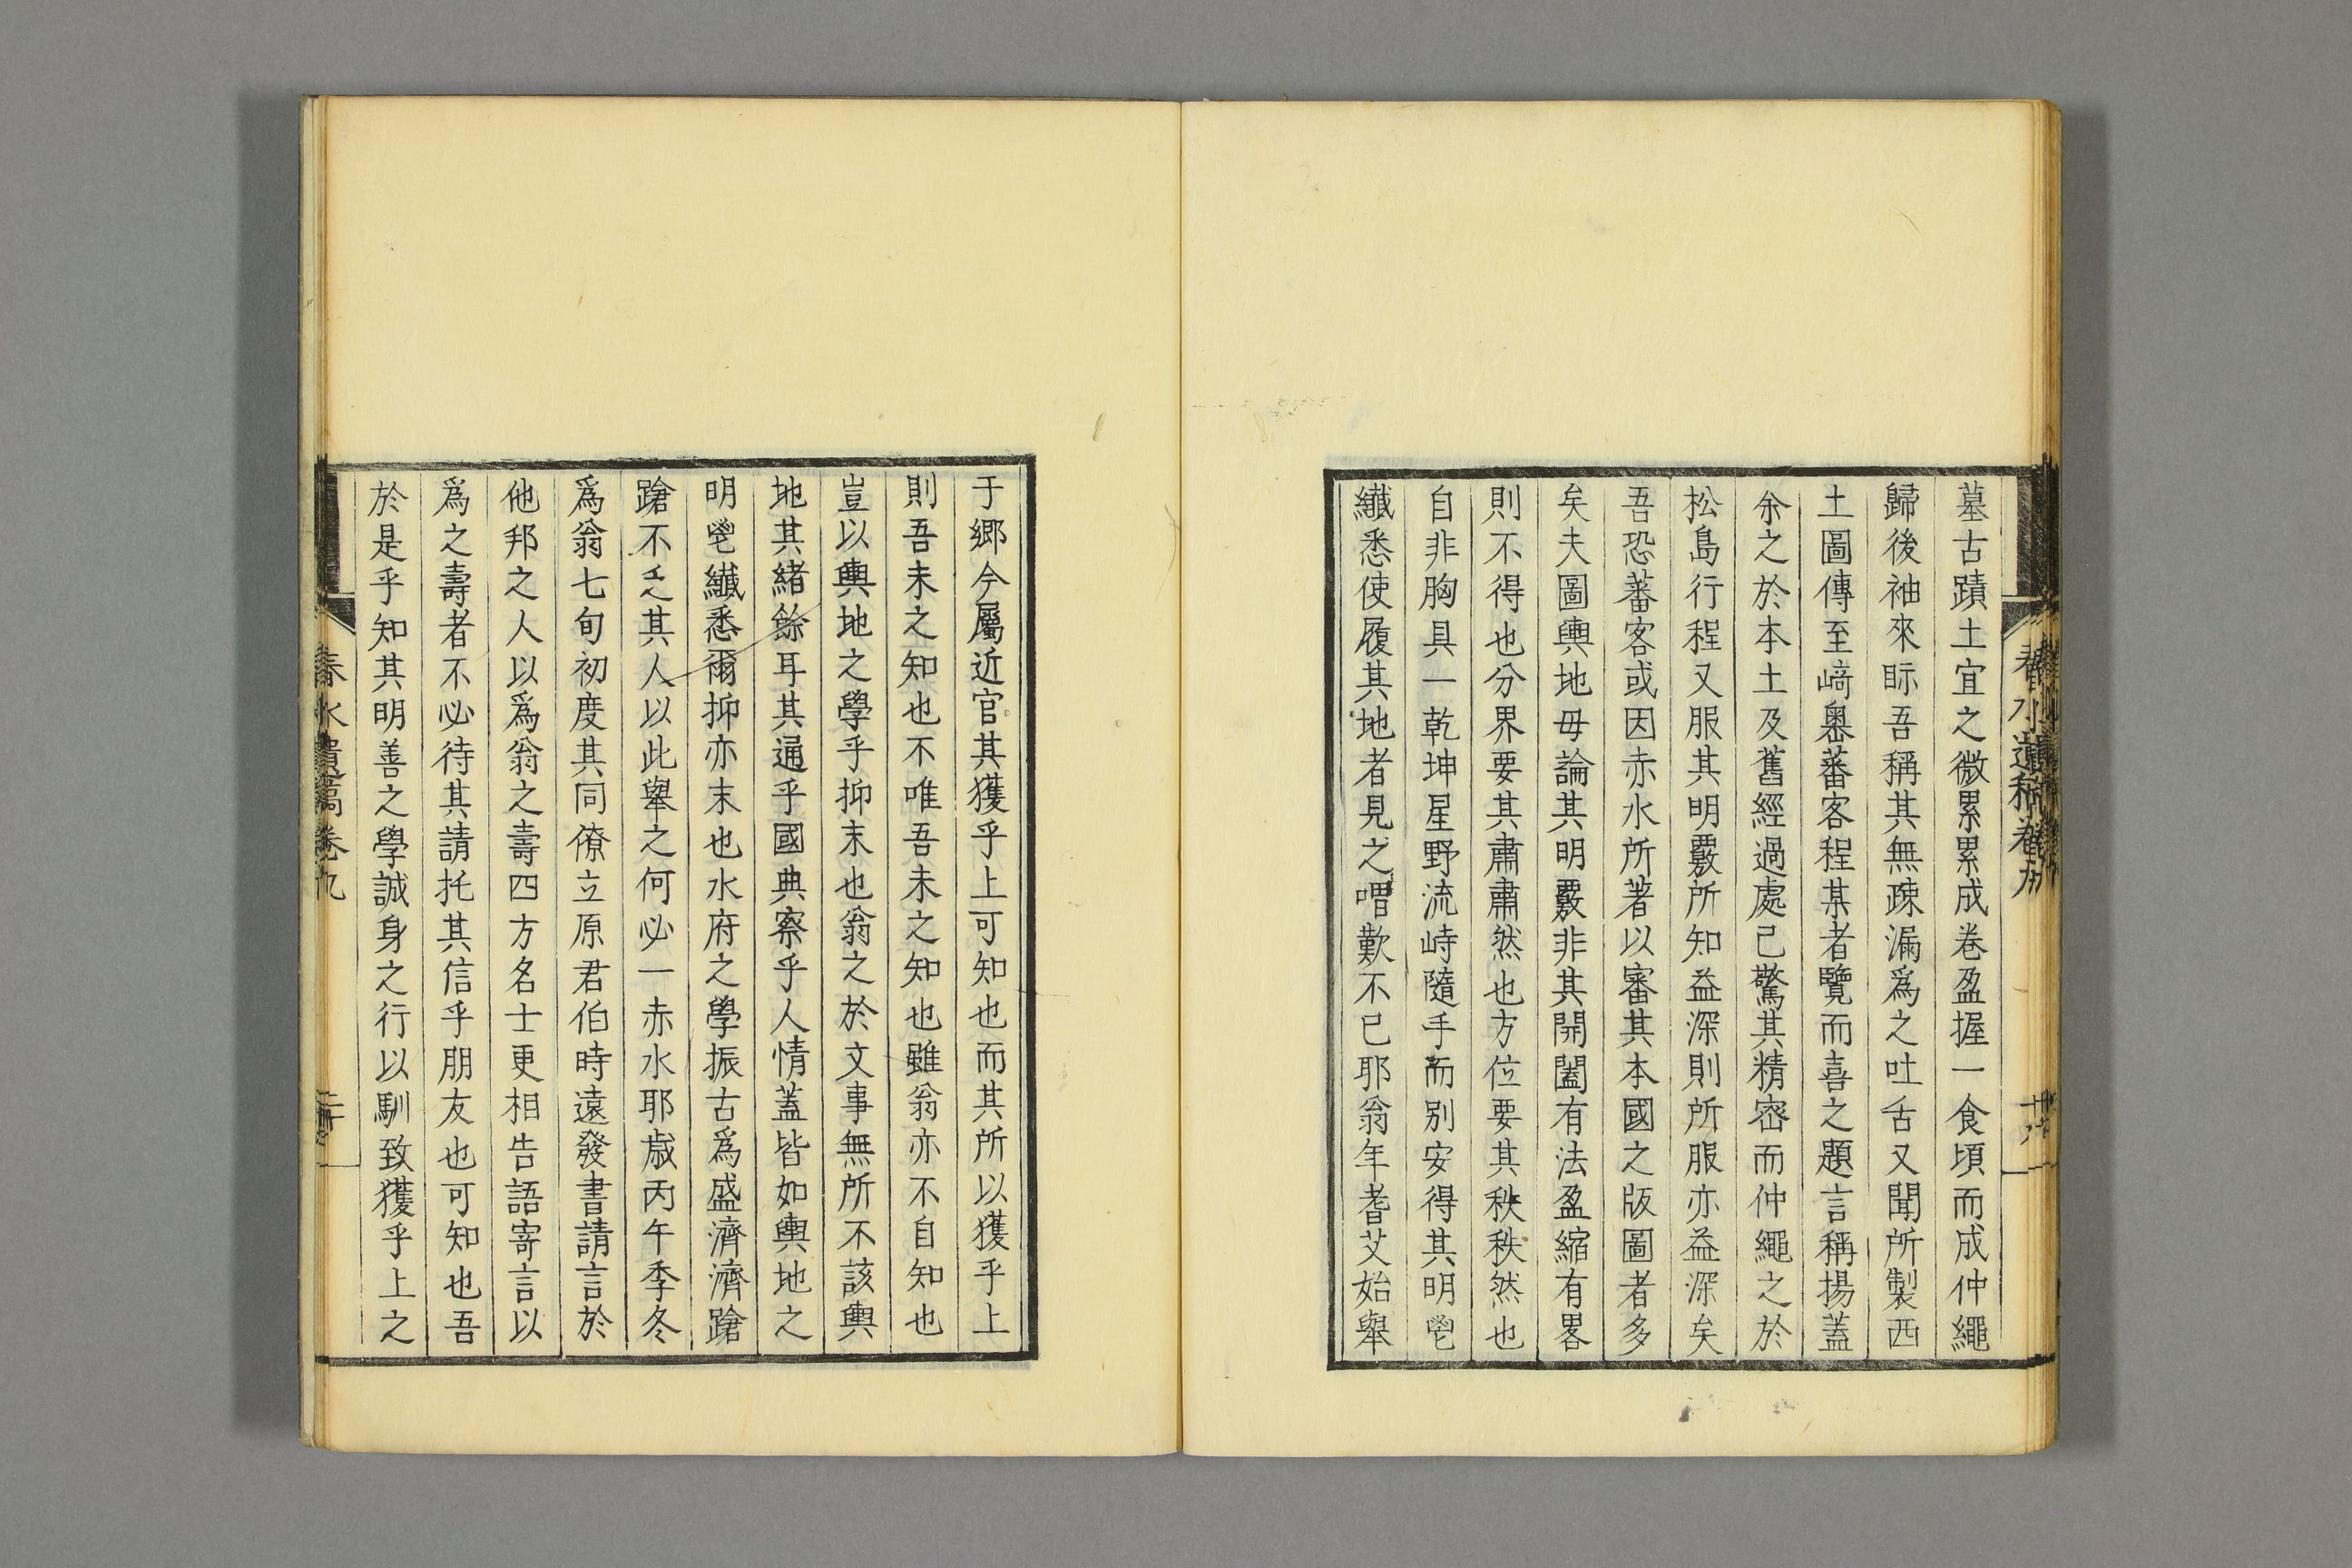 墓古蹟土宜之微累累成卷盈握一食頃而成仲繩
歸後袖來眎吾稱其無疎漏爲之吐舌又聞所製西
土圖傳至﨑奧蕃客程某者覽而喜之題言稱揚蓋
余之於本土及舊經過處己驚其精密而仲繩之於
松島行程又服其明覈所知益深則所服亦益深矣
吾恐蕃客或因赤水所著以審其本國之版圖者多
矣夫圖輿地毋論其明覈非其開闔有法盈縮有畧
則不得也分界要其肅肅然也方位要其秩秩然也
自非胸具一乾坤星野流峙隨手而別安得其明鬯
纖悉使履其地者見之喟歎不已耶翁年耆艾始舉
于鄉今屬近官其獲乎上可知也而其所以獲乎上
則吾未之知也不唯吾未之知也雖翁亦不自知也
豈以輿地之學乎抑末也翁之於文事無所不該輿
地其緒餘耳其通乎國典察乎人情蓋皆如輿地之
明鬯纖悉爾抑亦末也水府之學振古爲盛濟濟蹌
蹌不乏其人以此舉之何必一赤水耶歲丙午季冬
爲翁七旬初度其同僚立原君伯時遠發書請言於
他邦之人以爲翁之壽四方名士更相告語寄言以
爲之壽者不必待其請托其信乎朋友也可知也吾
於是乎知其明善之學誠身之行以馴致獲乎上之
春水遺稿卷九